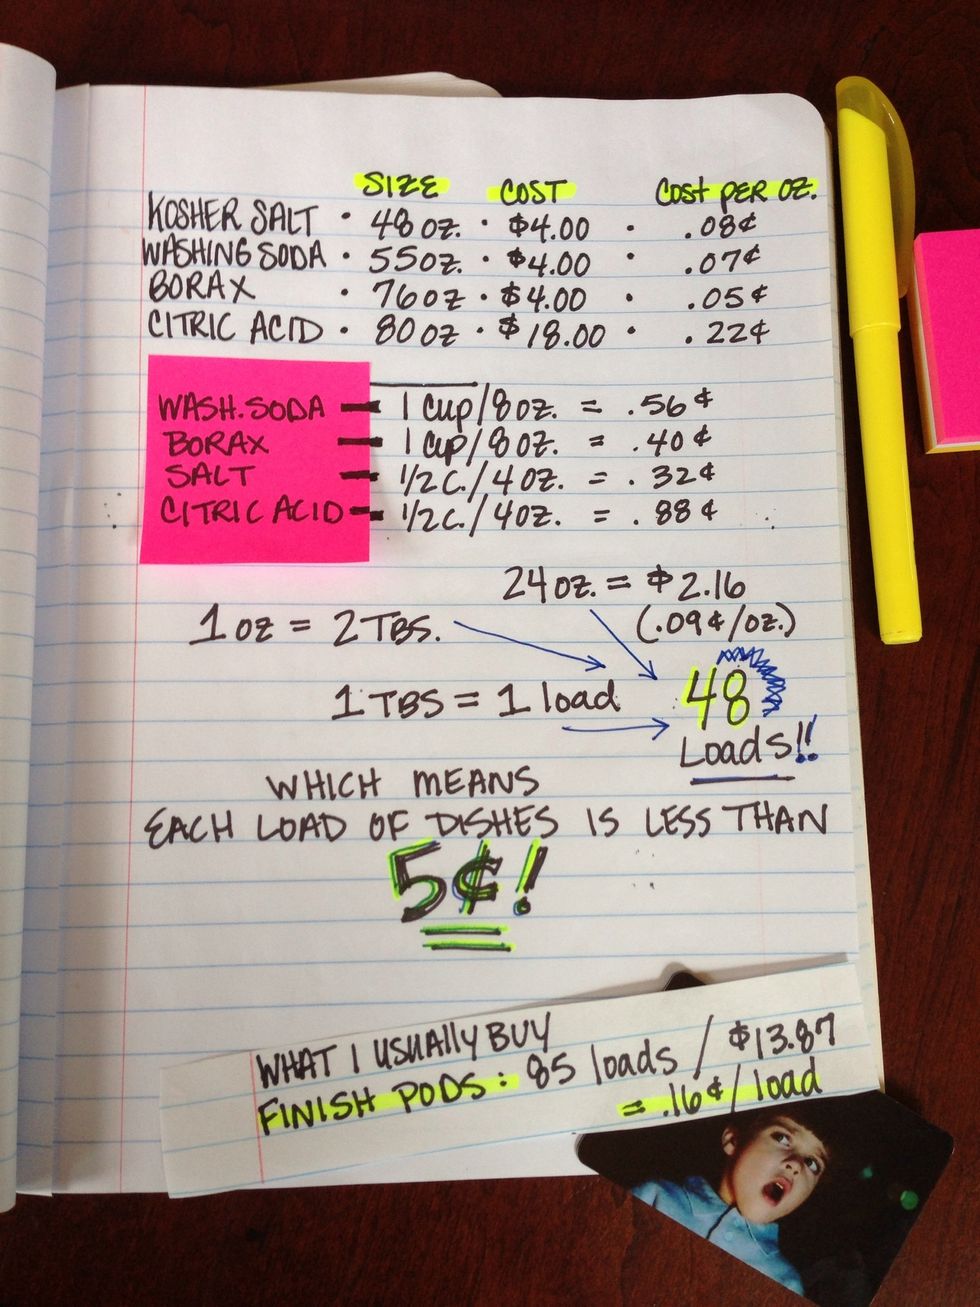 SIZE COST COST PER OZ.
KOSHER SALT · 48 OZ. · $4.00 · .08¢
WASHING SODA · 55OZ. · $4.00 · .07¢
BORAX · 76 OZ · $4.00 · .05¢
CITRIC ACID · 80 OZ · $18.00 · .22¢
WASH. SODA - 1 CUP/8 OZ. = .56¢
BORAX - 1 CUP/8 OZ. = .40¢
SALT - 1/2 C./4 OZ. = .32¢
CITRIC ACID - 1/2 C./4 OZ. = .88¢
24 OZ. = $2.16
(.09¢/OZ.)
1 OZ = 2 TBS.
1 TBS = 1 load
48
Loads!!
WHICH MEANS
EACH LOAD OF DISHES IS LESS THAN
5¢!
WHAT I USUALLY BUY
FINISH PODS: 85 loads / $13.87
= .16¢/load